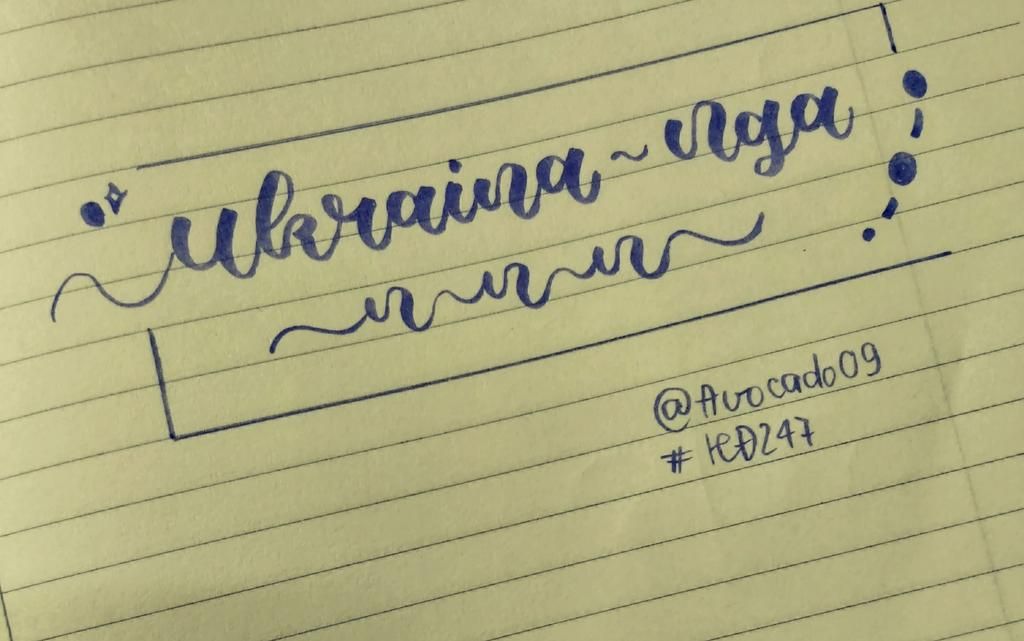 Ukraina ~ Nga
@Avocado09
#HĐ247